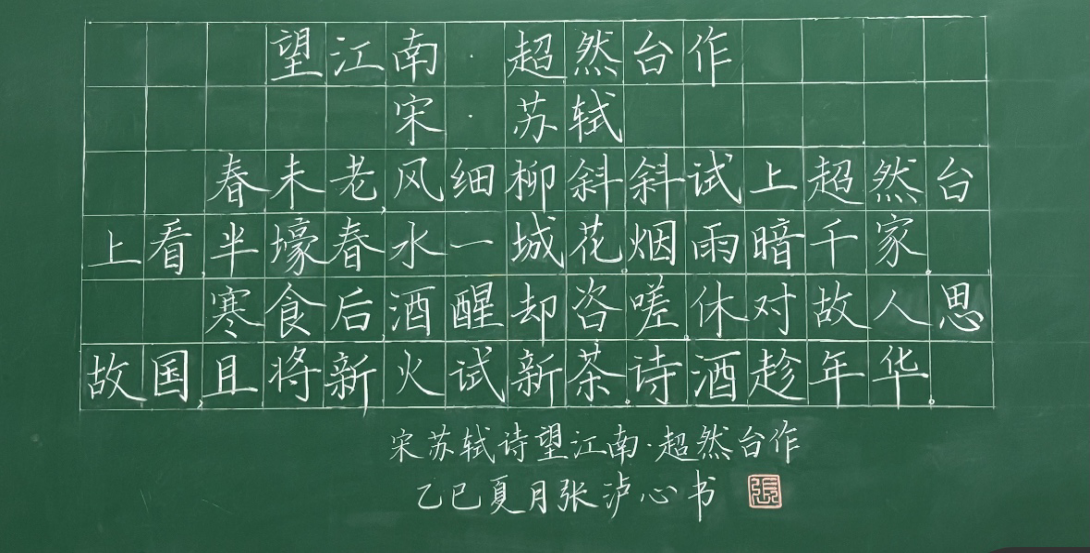 望江南·超然台作
宋·苏轼
春未老,风细柳斜斜试上超然台
上看,半壕春水一城花。烟雨暗千家。
寒食后,酒醒却咨嗟。休对故人思
故国,且将新火试新茶。诗酒趁年华。
宋苏轼诗望江南·超然台作
乙巳夏月张泸心书
張